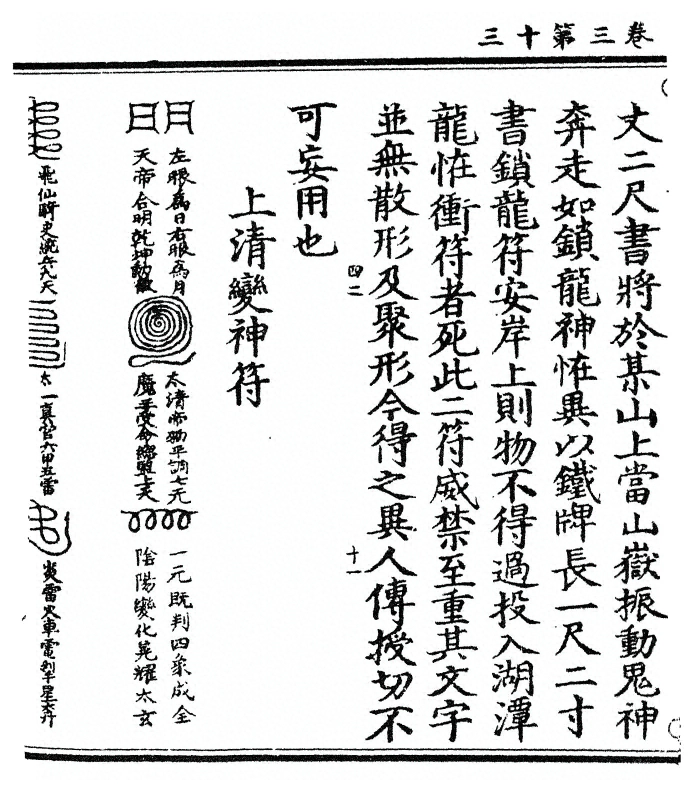 卷三第十三
丈二尺書將於某山上當山嶽振動鬼神
奔走如鎖龍神怪異以鐵牌長一尺二寸
書鎖龍符安岸上則物不得過投入湖潭
龍怪衝符者死此二符威禁至重其文字
並無散形及聚形今得之異人傳授切不
四二
十一
可妄用也
上清變神符
左眼爲日右眼爲月
天帝合明乾坤
太清帝 平調七元
魔王受命 上天
一元既判四象成全
陰陽變化晃耀太玄
飛仙騎吏 九天
太一真官六甲五雷
炎雷火車電 星